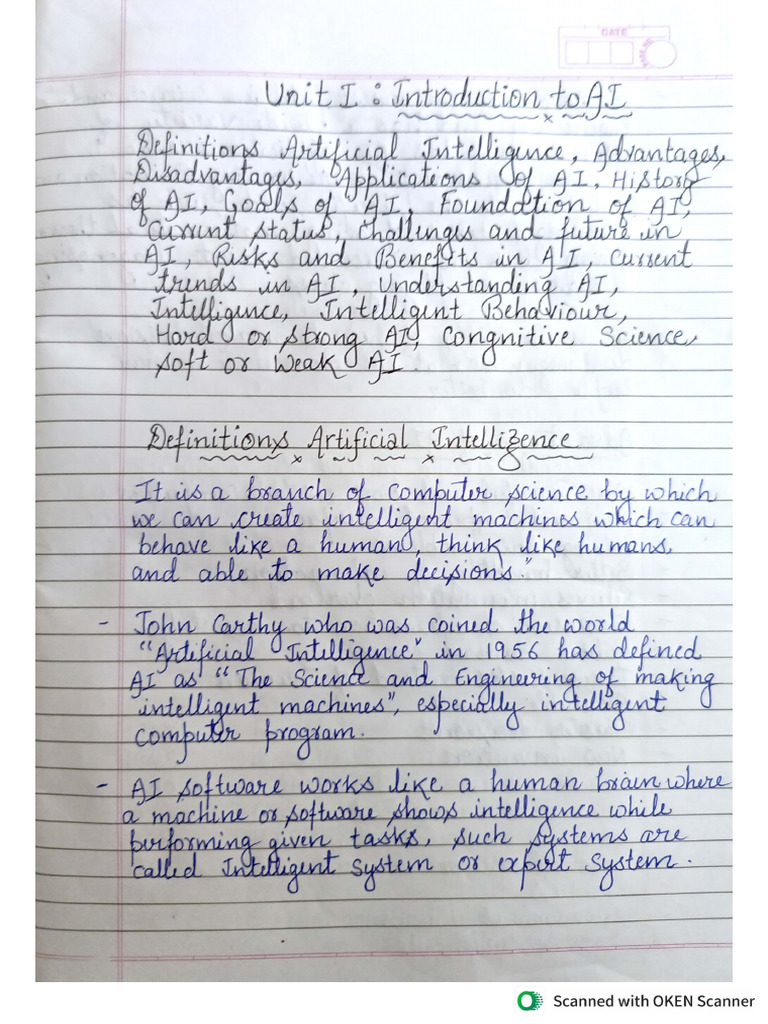 DATE
Unit I : Introduction to AI
Definitions Artificial Intelligence, Advantages,
Disadvantages, Applications of AI, History
of AI, Goals of AI, Foundation of AI,
Current status, Challenges and future in
AI, Risks and Benefits in AI, Current
trends in AI, Understanding AI,
Intelligence, Intelligent Behaviour,
Hard or Strong AI, Congnitive Science,
Soft or Weak AI.
Definitions Artificial Intelligence
It is a branch of computer science by which
we can create intelligent machines which can
behave like a human, think like humans,
and able to make decisions."
- John Carthy who was coined the world
"Artificial Intelligence" in 1956 has defined
AI as "The Science and Engineering of making
intelligent machines", especially intelligent
computer program.
- AI software works like a human brain where
a machine or software shows intelligence while
performing given tasks, such systems are
called Intelligent System or expert System.
Scanned with OKEN Scanner